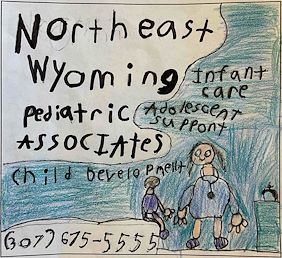 Northeast
Wyoming
Infant
care
Pediatric
Adolescent
Support
ASSOCIATES
Child Development
(307) 675-5555